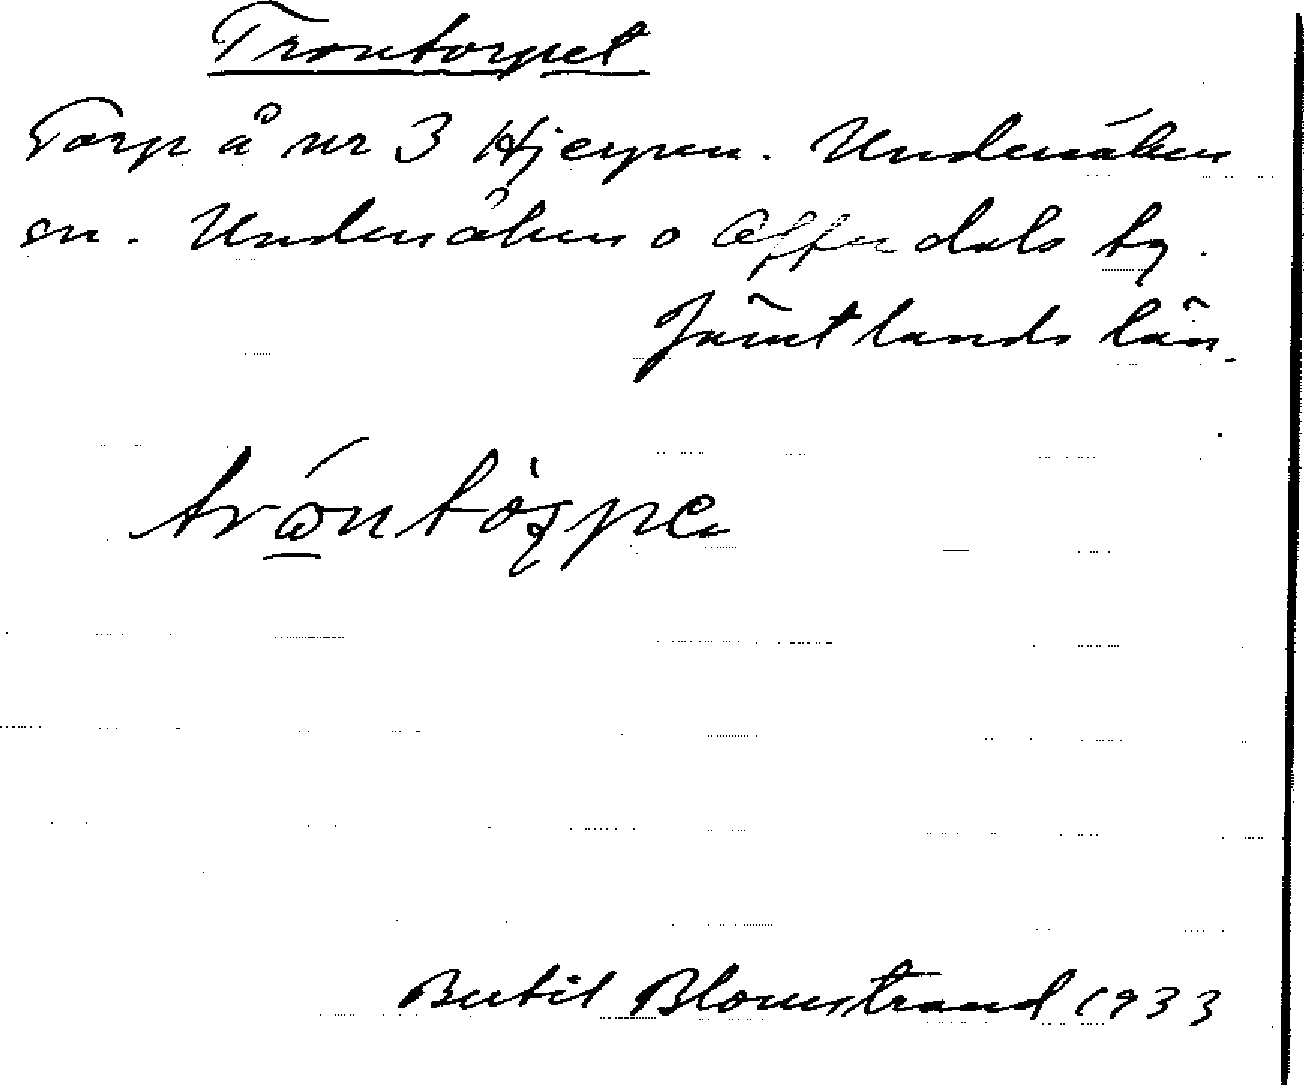 Trontorpet
Torp å nr 3 Hjerpen. Undersåkers
sn. Undersåkers o Offerdals tg.
Jämtlands län.
Bertil Blomstrand 1933